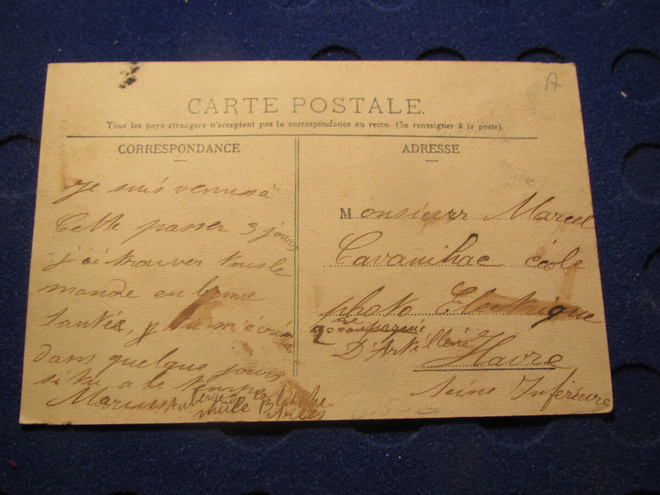 A
CARTE POSTALE.
Tous les pays étrangers n'acceptent pas la correspondance au recto. (Se renseigner à la poste).
CORRESPONDANCE
ADRESSE
Je suis venus à
Cette passer 3 jours
j'ai trouver tous le
monde en bonne
santée,
dans quelque jours
si tu a le temps
Marius
Auberge de la
mule Blanche
Monsieur Marcel
Cavanihac école
photo Electrique
2e compagnie
D'Artillerie
Havre
Seine Inférieure